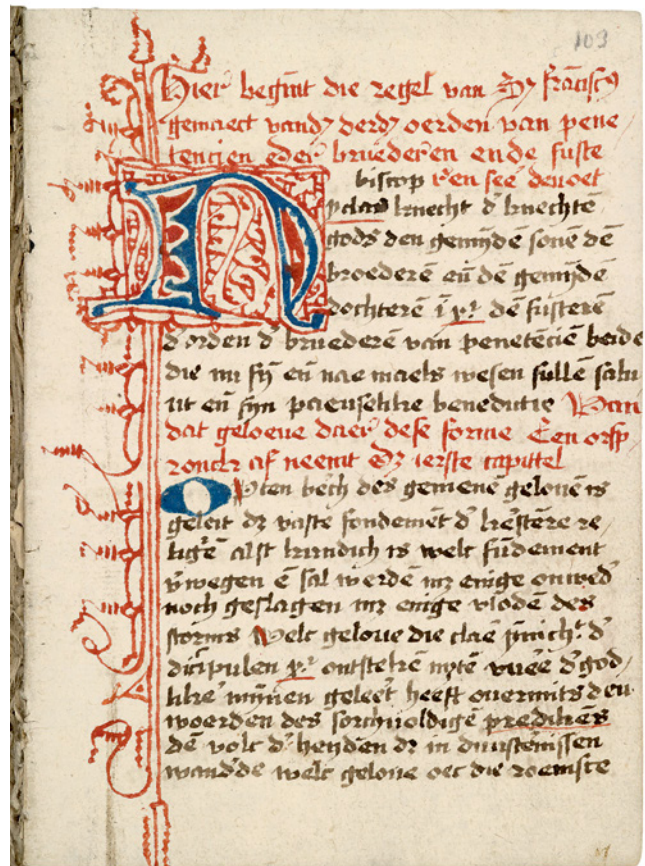 103
Hier begint die regel van S. franciscꝰ
gemaect vand derd oerden van pene
tencien eder bruederen ende suste
N biscop r'en see devoet
knecht d' knechtē
gods den gemȳdē sonē dē
broederē eñ dē gemȳdē
dochterē ī xp̄o dē susterē
d'orden d' bruederē van penetēciē beide
die nu sȳ eñ nae maels wesen sullē salu
ut eñ syn paeuselike benedictie Van
dat geloeve daer dese forme Een orsp
ronck af neemt dz ierste capittel
Opten bech des gemenē gelovē is
geleit dz vaste fondemēt d' kerstēre re
ligiē alst kundich is welc fūdement
v'wegen ē sal werdē mz enige onwed'
noch geslagen mz enige vlodē des
storms Welc gelove die claē d'
discipulen xp̄i ontstekē mytē vuēr d' god
like mynnen geleert heeft overmits den
woerden des sorchvoldigē predikēs
dē volc d' heydēn dz in duustenissen
wand'de welc gelove oec die roemste